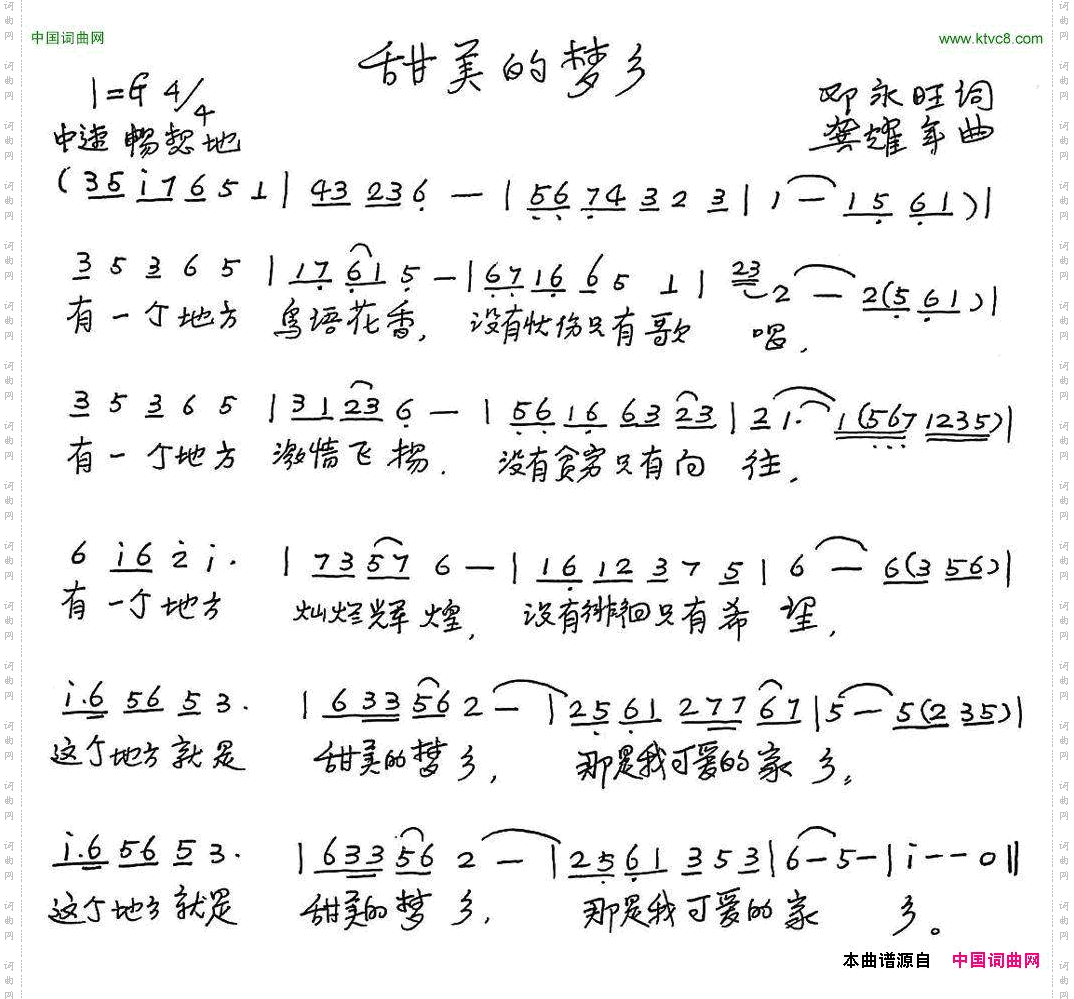 中国词曲网
www.ktvc8.com
甜美的梦乡
1=G 4/4
邓永旺词
中速 畅想地
龚耀年曲
(35 i7 6 5 1 | 43 236 — | 56 74 3 2 3 | 1 — 15 61) |
3 5 3 6 5 | 17 61 5 — | 67 16 6 5 1 | 23 2 — 2(5 61) |
有一个地方 鸟语花香, 没有忧伤只有歌 唱,
3 5 3 6 5 | 31 23 6 — | 56 16 63 23 | 2 1· 1(567 1235) |
有一个地方 激情飞扬. 没有贫穷只有向 往,
6 i6 2 i· | 73 57 6 — | 16 12 3 7 5 | 6 — 6(3 56) |
有 一个地方 灿烂辉煌, 没有徘徊只有希 望,
i·6 56 5 3· | 633 56 2 — | 25 61 277 67 | 5 — 5(2 35) |
这个地方就是 甜美的梦乡, 那是我可爱的家乡,
i·6 56 5 3· | 633 56 2 — | 25 61 3 5 3 | 6 — 5 — | i — — 0 ||
这个地方就是 甜美的梦乡, 那是我可爱的家 乡。
本曲谱源自 中国词曲网